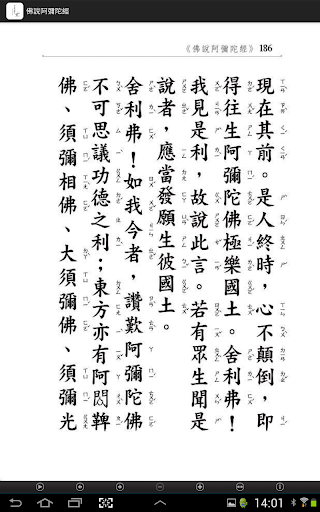 佛說阿彌陀經
《佛說阿彌陀經》 186
現在其前。是人終時，心不顛倒，即
得往生阿彌陀佛極樂國土。舍利弗！
我見是利，故說此言。若有眾生聞是
說者，應當發願生彼國土。
舍利弗！如我今者，讚歎阿彌陀佛
不可思議功德之利；東方亦有阿閦鞞
佛、須彌相佛、大須彌佛、須彌光
14:01